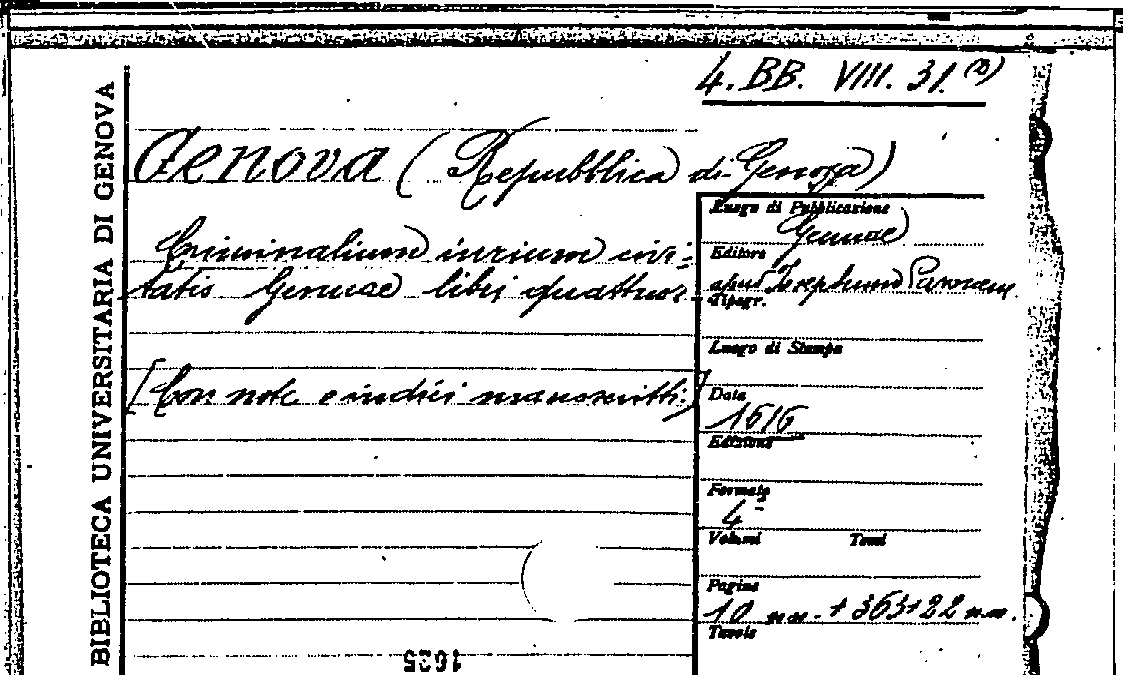 4. BB. VIII. 31. (3)
BIBLIOTECA UNIVERSITARIA DI GENOVA
Genova (Repubblica di Genova)
Criminalium iurium civi-
tatis Genuae libri quattuor.
[Con note e indici manoscritti.]
Luogo di Pubblicazione
Genuae
Editore
apud Josephum Pavonem
Tipogr.
Luogo di Stampa
Data
1616
Edizione
Formato
4º
Volumi Tomi
Pagine
10 nn. + 363+22 nn.
Tavole
1625